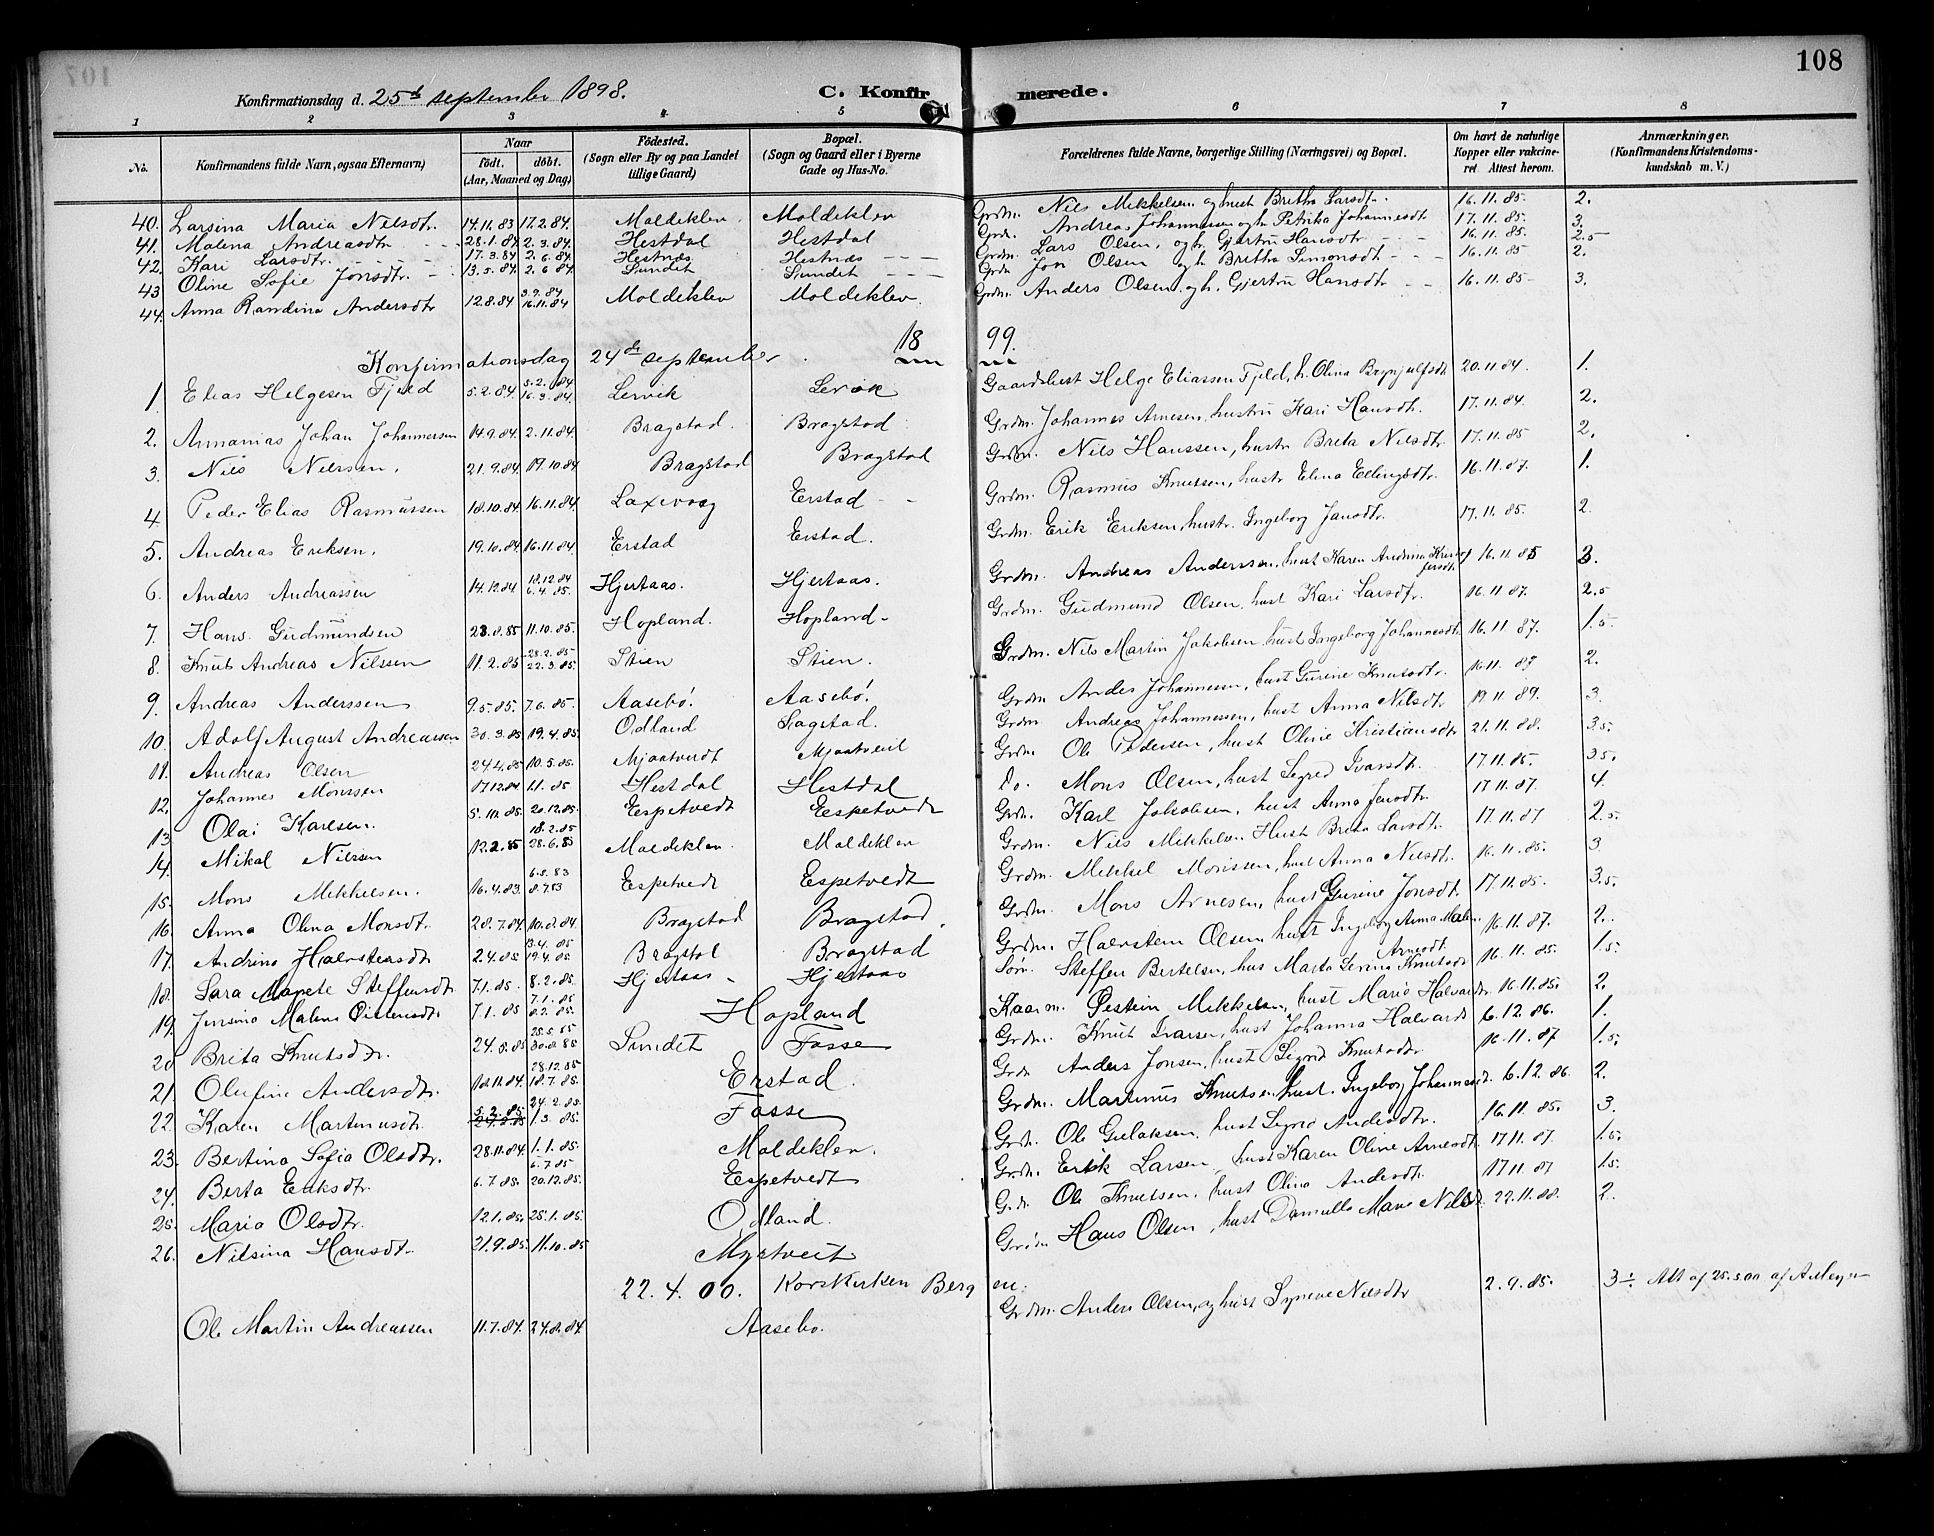 108
Konfirmationsdag d. 25de september 1898. C. Konfirmerede.
1 2 3 4 5 6 7 8
No. Konfirmandens fulde Navn, ogsaa Efternavn) Naar født. døbt. (Aar, Maaned og Dag) Fødested. (Sogn eller By og paa Landet tillige Gaard) Bopæl. (Sogn og Gaard eller i Byerne Gade og Hus-No. Forældrenes fulde Navne, borgerlige Stilling (Næringsvei) og Bopæl. Om havt de naturlige Kopper eller vakcineret Attest herom. Anmærkninger. (Konfirmandens Kristendomskundskab m. V.)
40. Larsina Maria Nilsdtr. 14.11.83 17.2.84. Moldeklev. Moldeklev Grdm. Nils Mikkelsen og hust Britha Larsdtr. 16.11.85. 2.
41. Malena Andreasdtr 28.1.84 2.3.84. Hestdal Hestdal Grdr. Andreas Johannesen og h. Petrika Johannesdt 17.11.85. 3.
42. Kari Larsdtr. 17.3.84 2.6.84. Hestnæs Hestnæs Grdm. Lars Olsen, og h. Gjertru Hansdtr 16.11.85. 2.5
43 Oline Sofie Jonsdtr. 13.5.84. 2.6.84. Sundet Sundet Grdm Jon Olsen og h. Britha Simonsdt 16.11.85 2.
44. Anna Randina Andersdtr 12.8.84 3.9.84 16.11.84 Moldeklev Moldeklev. Grdm. Anders Olsen og h. Gjertru Hansdtr 16.11.85 3.
Konfirmationsdag 24de september 1899.
1. Elias Helgesen Fjeld 5.2.84. 5.2.84 16.3.84. Lervik Lervik Gaardsbest Helge Eliassen Fjeld, h. Olina Brynjulfsdt 20.11.84. 1.
2. Annanias Johan Johannessen 14.9.84. 2.11.84. Bragstad. Bragstad Grdm. Johannes Arnesen, hustru Kari Hansdt. 17.11.84. 2.
3. Nils Nilssen. 21.9.84. 19.10.84 Bragstad Bragstad Grdm. Nils Hanssen, hustr Breta Nilsdtr. 17.11.85 2.
4. Peder Elias Rasmussen 18.10.84 16.11.84. Laxevaag Erstad Grdm. Rasmus Knutsen, hustr Elina Ellingsdtr. 16.11.87. 1.
5. Andreas Eriksen. 19.10.84. 16.11.84. Erstad Erstad. Grdm. Erik Eriksen, hustr. Ingeborg Jansdtr. 17.11.85. 2.
6. Anders Andreassen 14.12.84 18.12.84 6.4.85. Hjertaas. Hjertaas. Grdm. Andreas Anderssen, hust Karen Andrina 16.11.85 3.
7. Hans Gudmundsen 23.8.85 11.10.85. Hopland. Hopland Grdm. Gudmund Olsen, hust Kari Larsdtr. 16.11.87. 2.5
8. Knut Andreas Nilssen 11.2.85 28.2.85 22.3.85. Stien Stien. Grdm. Nils Martin Jakobsen, hust Ingeborg Johannesdtr. 16.11.87. 1.5.
9. Andreas Anderssen 9.5.85. 7.6.85. Aasebø. Aasebø. Grdm Andes Johannesen, hust Gurine Knutsdtr. 16.11.87 2.
10. Adolf August Andreassen 30.3.85 19.4.85. Odland Sagstad. Grdm Andreas Johannessen, hust Anna Nilsdtr 19.11.89. 3.
11. Andreas Olsen 24.4.85 10.5.85. Mjaatveit Grdm. Ole Pedersen, hust Oline Kristiansdtr 21.11.88. 3.5.
12. Johannes Monssen 17.12.84 1.1.85 Hestdal Hestdal Do. Mons Olsen, hust Sigrid Ivarsdtr. 17.11.85. 3.5.
13. Olai Karlsen. 5.10.85. 20.12.85. Espetvedt Espetvedt Grdr. Karl Jakobsen, hust Anna Jensdtr. 17.11.87. 4.
14. Mikal Nilsen 12.2.85 18.2.85 28.6.85 Moldeklev. Moldeklev Grdm. Nils Mikkelsen Hust Breta Larsdtr. 17.11.87 2.5.
15. Mons Mikkelsen. 16.4.83. 6.5.83 8.7.83 Espetvedt Espetvedt Grdm. Mikkel Monssen, hust Anna Nilsdtr. 16.11.85. 3.
16. Anna Olina Monsdtr. 28.7.84. 10.8.84. Bragstad Bragstad. Grdm. Mons Arnesen, hust Gurine Jonsdtr. 17.11.85. 3.5.
17. Andrina Halstensdtr 2.4.85 13.4.85 19.4.85 Bragstad Bragstad Grdm. Halsten Olsen, hust Ingeborg Anna Malen Arnesdt. 16.11.87. 2.
18. Sara Marete Steffensdtr 7.1.85. 8.2.85. Hjertaas Hjertaas Søn. Steffen Bertelsen, hus Marta Serina Knutsdtr 16.11.85. 1.5.
19. Jensine Malene Øistensdtr. 7.1.85 7.1.85 8.2.85. Hopland Kaarm. Østein Mikkelsen, hust Maria Halvardsdtr 16.11.85. 2.
20 Brita Knutsdtr. 24.5.85 25.5.85 30.8.85 Sundet Fosse Grdm. Knut Ivarsen, hust Johanna Halvards 6.12.86. 1.
21. Olufine Andersdtr. 18.11.84. 28.12.85 18.7.85. Erstad. Grdr Anders Jonsen, hust Sigrid Knutsdtr 16.11.87 1.5.
22. Karen Martinusdtr. 5.2.85. 24.2.85. 1.3.85. Fosse Grdm. Martinus Knutsen, hust. Ingeborg Johannesdt. 6.12.86. 2.
23. Bertina Sofia Olsdtr. 28.11.84. 1.1.85. Moldeklev. Grdr. Ole Gulaksen, hust Sigrid Andersdtr. 16.11.85. 3.
24. Berta Eriksdtr. 6.7.85. 6.7.85 20.12.85. Espetvedt Grdm. Erik Larsen, hust Karen Oline Arnesdt. 17.11.87. 1.5.
25. Maria Olsdtr. 12.1.85. 25.1.85. Odland. Grdr. Ole Knutsen, hust Olina Andersdt. 17.11.87 1.5.
26. Nilsina Hansdtr. 21.9.85. 11.10.85 Myrtveit Grdm Hans Olsen, hust Marie Nilsdt. 22.11.88. 2.
22.4.00. Korskirken Bergen.
Ole Martin Andreassen 11.7.84. 24.8.84. Aasebø. Grdm. Anders Olsen, og hust Syneve Nilsdtr 2.9.85. 3÷ Att af 25.5.00 af A. Meyer